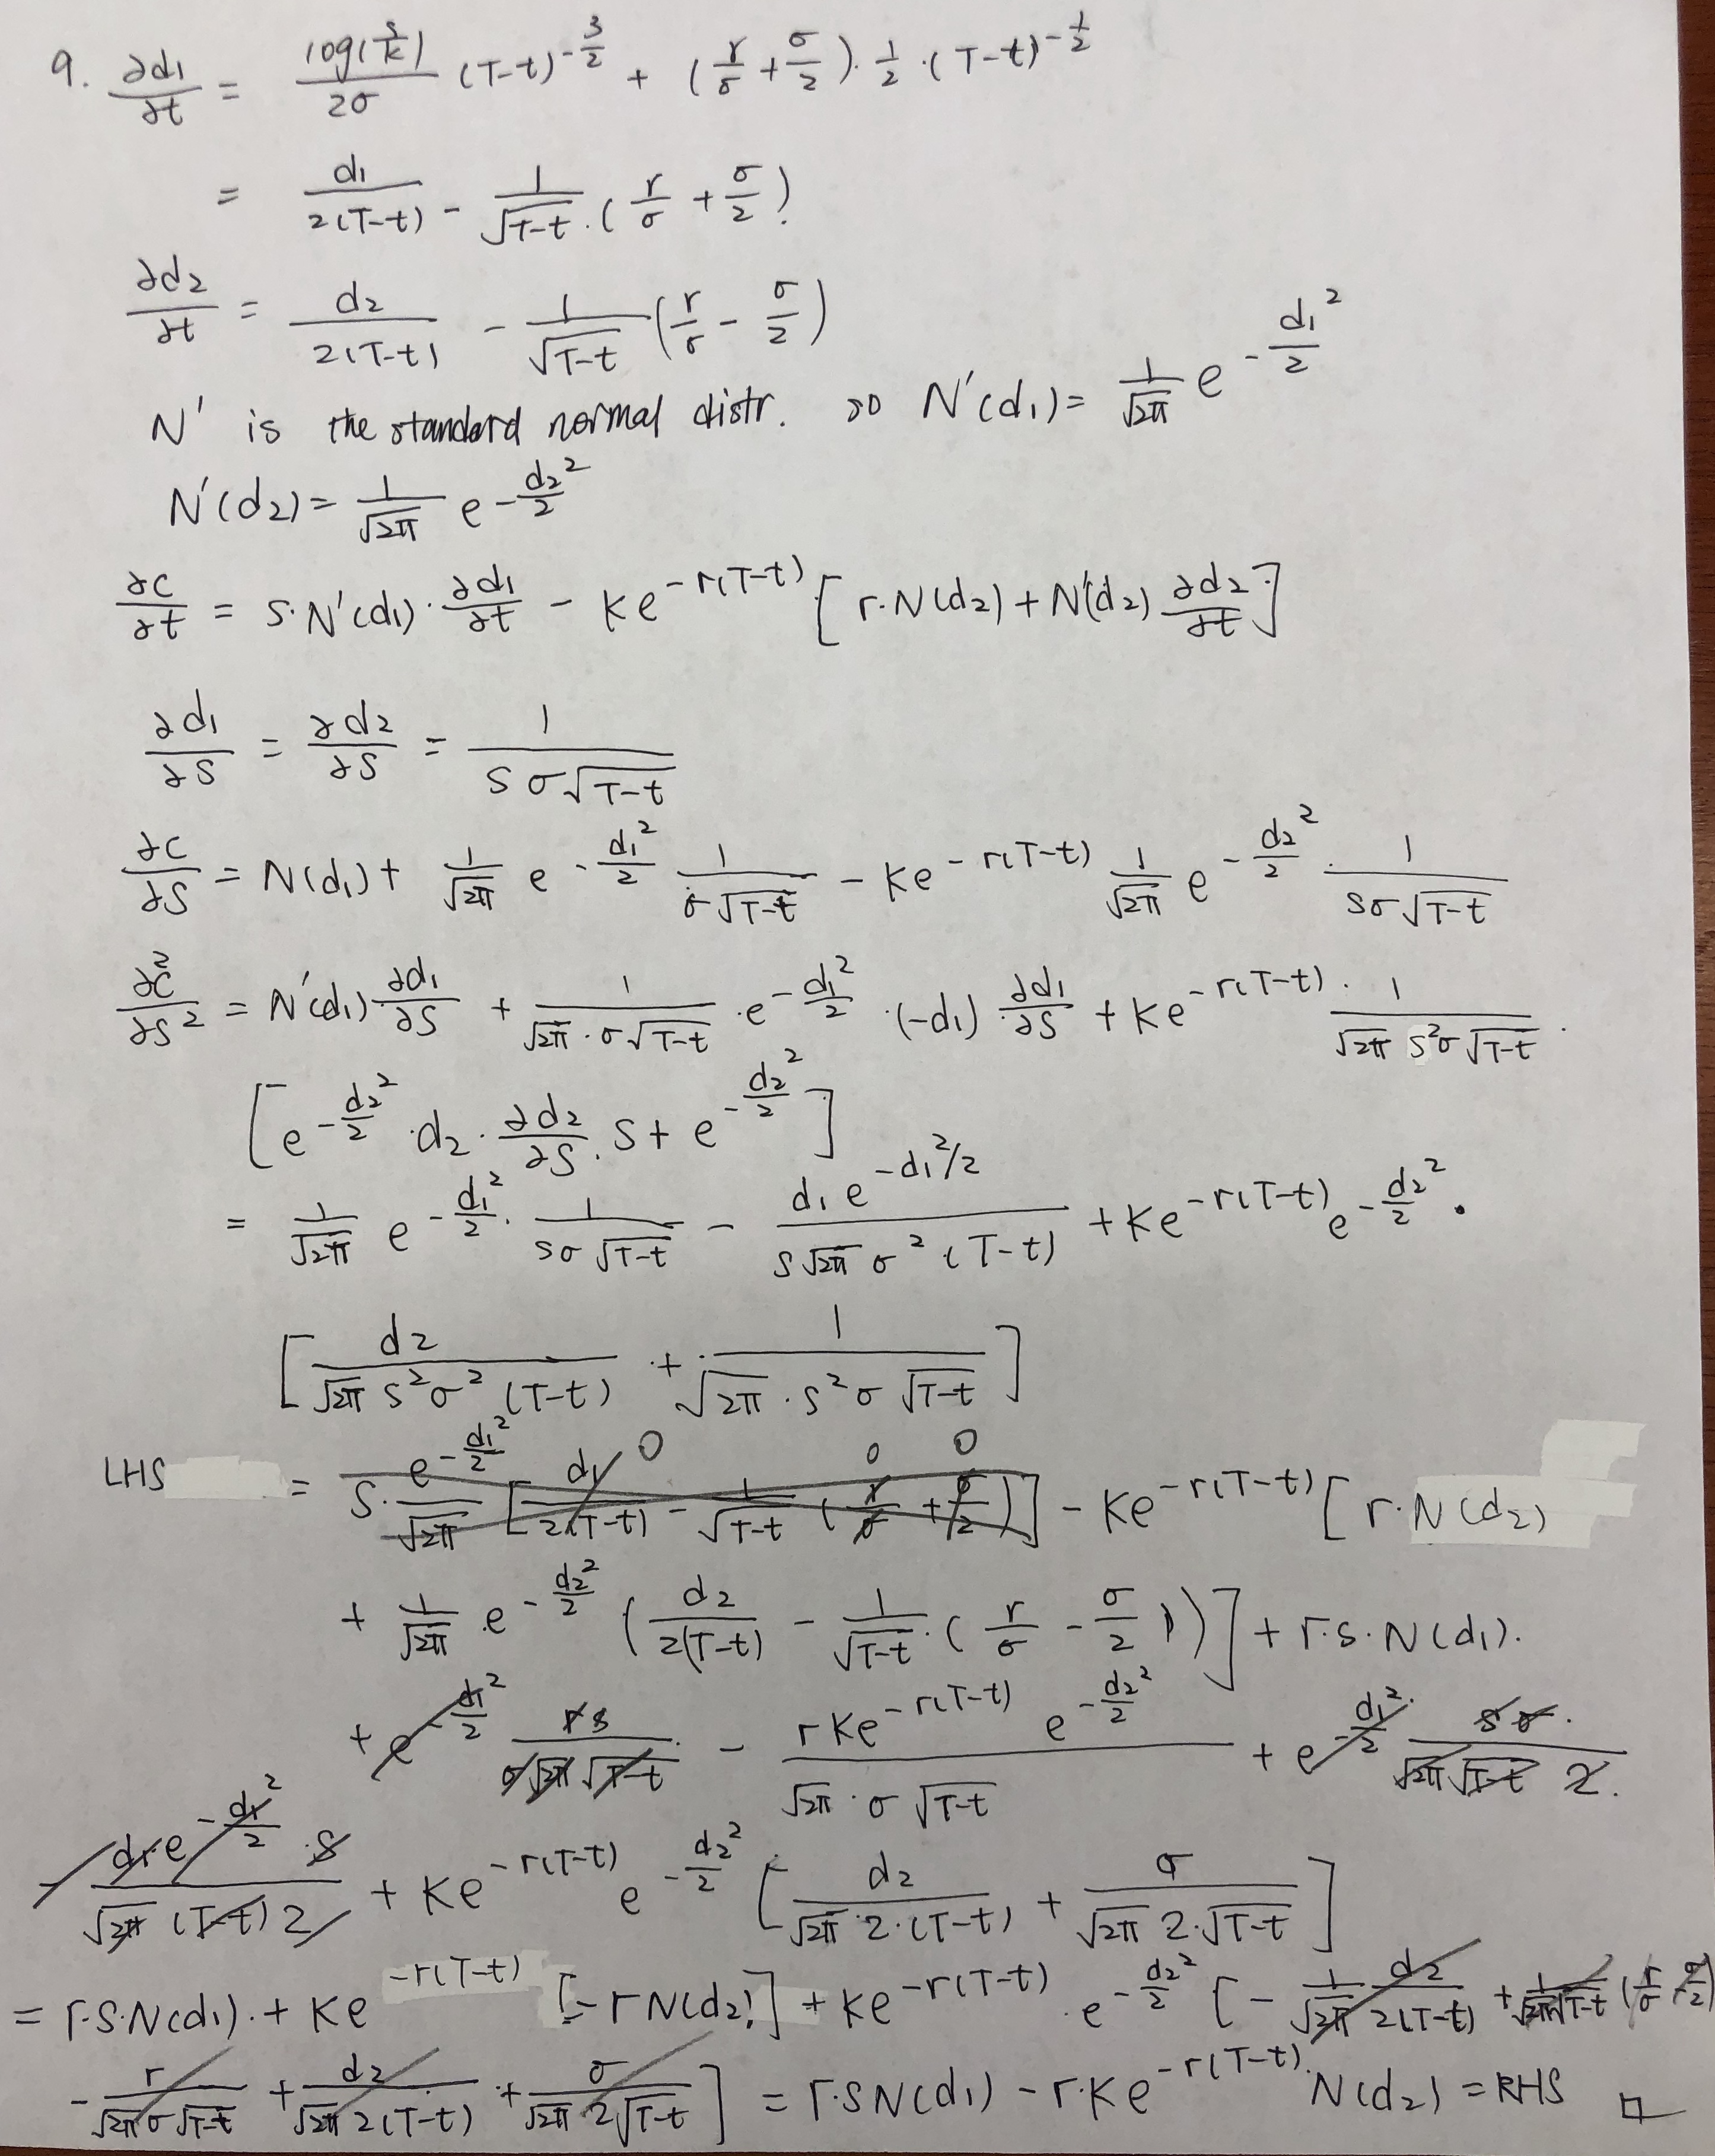 9. ∂d₁/∂t = log(S/K)/2σ (T-t)^(-3/2) + (r/σ + σ/2)·1/2·(T-t)^(-1/2)
= d₁/2(T-t) - 1/√(T-t)·(r/σ + σ/2)
∂d₂/∂t = d₂/2(T-t) - 1/√(T-t) (r/σ - σ/2)
N' is the standard normal distr. so N'(d₁) = 1/√2π e^(-d₁²/2)
N'(d₂) = 1/√2π e^(-d₂²/2)
∂C/∂t = S·N'(d₁)·∂d₁/∂t - Ke^(-r(T-t)) [r·N(d₂) + N'(d₂) ∂d₂/∂t]
∂d₁/∂S = ∂d₂/∂S = 1/(Sσ√(T-t))
∂C/∂S = N(d₁) + 1/√2π e^(-d₁²/2) 1/(σ√(T-t)) - Ke^(-r(T-t)) 1/√2π e^(-d₂²/2)·1/(Sσ√(T-t))
∂²C/∂S² = N'(d₁) ∂d₁/∂S + 1/(√2π·σ√(T-t))·e^(-d₁²/2)·(-d₁) ∂d₁/∂S + Ke^(-r(T-t))·1/(√2π S²σ√(T-t))·
[e^(-d₂²/2)·d₂·∂d₂/∂S·S + e^(-d₂²/2)]
= 1/√2π e^(-d₁²/2)·1/(Sσ√(T-t)) - d₁e^(-d₁²/2)/(S√2π σ²(T-t)) + Ke^(-r(T-t)) e^(-d₂²/2)·
[d₂/(√2π S²σ²(T-t)) + 1/(√2π·S²σ√(T-t))]
LHS = S·e^(-d₁²/2)/√2π [d₁/2(T-t) - 1/√(T-t) (r/σ + σ/2)] - Ke^(-r(T-t)) [r·N(d₂)
+ 1/√2π·e^(-d₂²/2) (d₂/2(T-t) - 1/√(T-t)·(r/σ - σ/2))] + r·S·N(d₁)·
+ e^(-d₁²/2) rS/(σ√2π√(T-t)) - rKe^(-r(T-t)) e^(-d₂²/2)/(√2π·σ√(T-t)) + e^(-d₁²/2) Sσ/(√2π√(T-t) 2)·
- d₁e^(-d₁²/2)·S/(√2π(T-t)2) + Ke^(-r(T-t)) e^(-d₂²/2) [d₂/(√2π·2·(T-t)) + σ/(√2π 2·√(T-t))]
= r·S·N(d₁)·+ Ke^(-r(T-t)) [-rN(d₂)] + Ke^(-r(T-t))·e^(-d₂²/2) [-1/√2π d₂/2(T-t) + 1/(√2π√(T-t)) (r/σ - σ/2)
- r/(√2πσ√(T-t)) + d₂/(√2π2(T-t)) + σ/(√2π 2√(T-t))] = r·SN(d₁) - r·Ke^(-r(T-t))·N(d₂) = RHS □